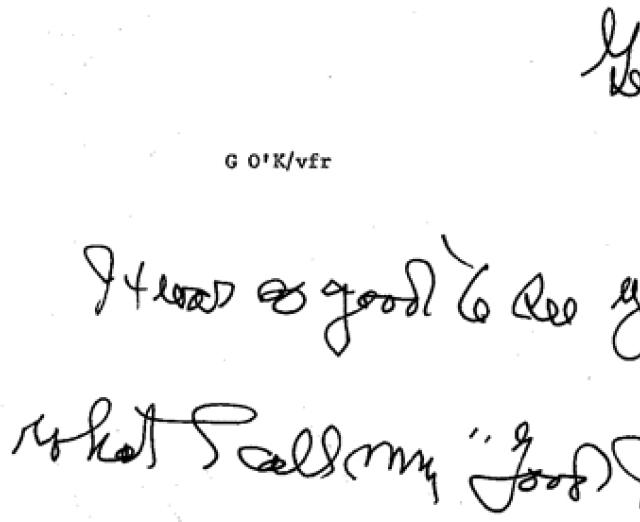 G O'K/vfr
It was so good to see
what I call my "Good